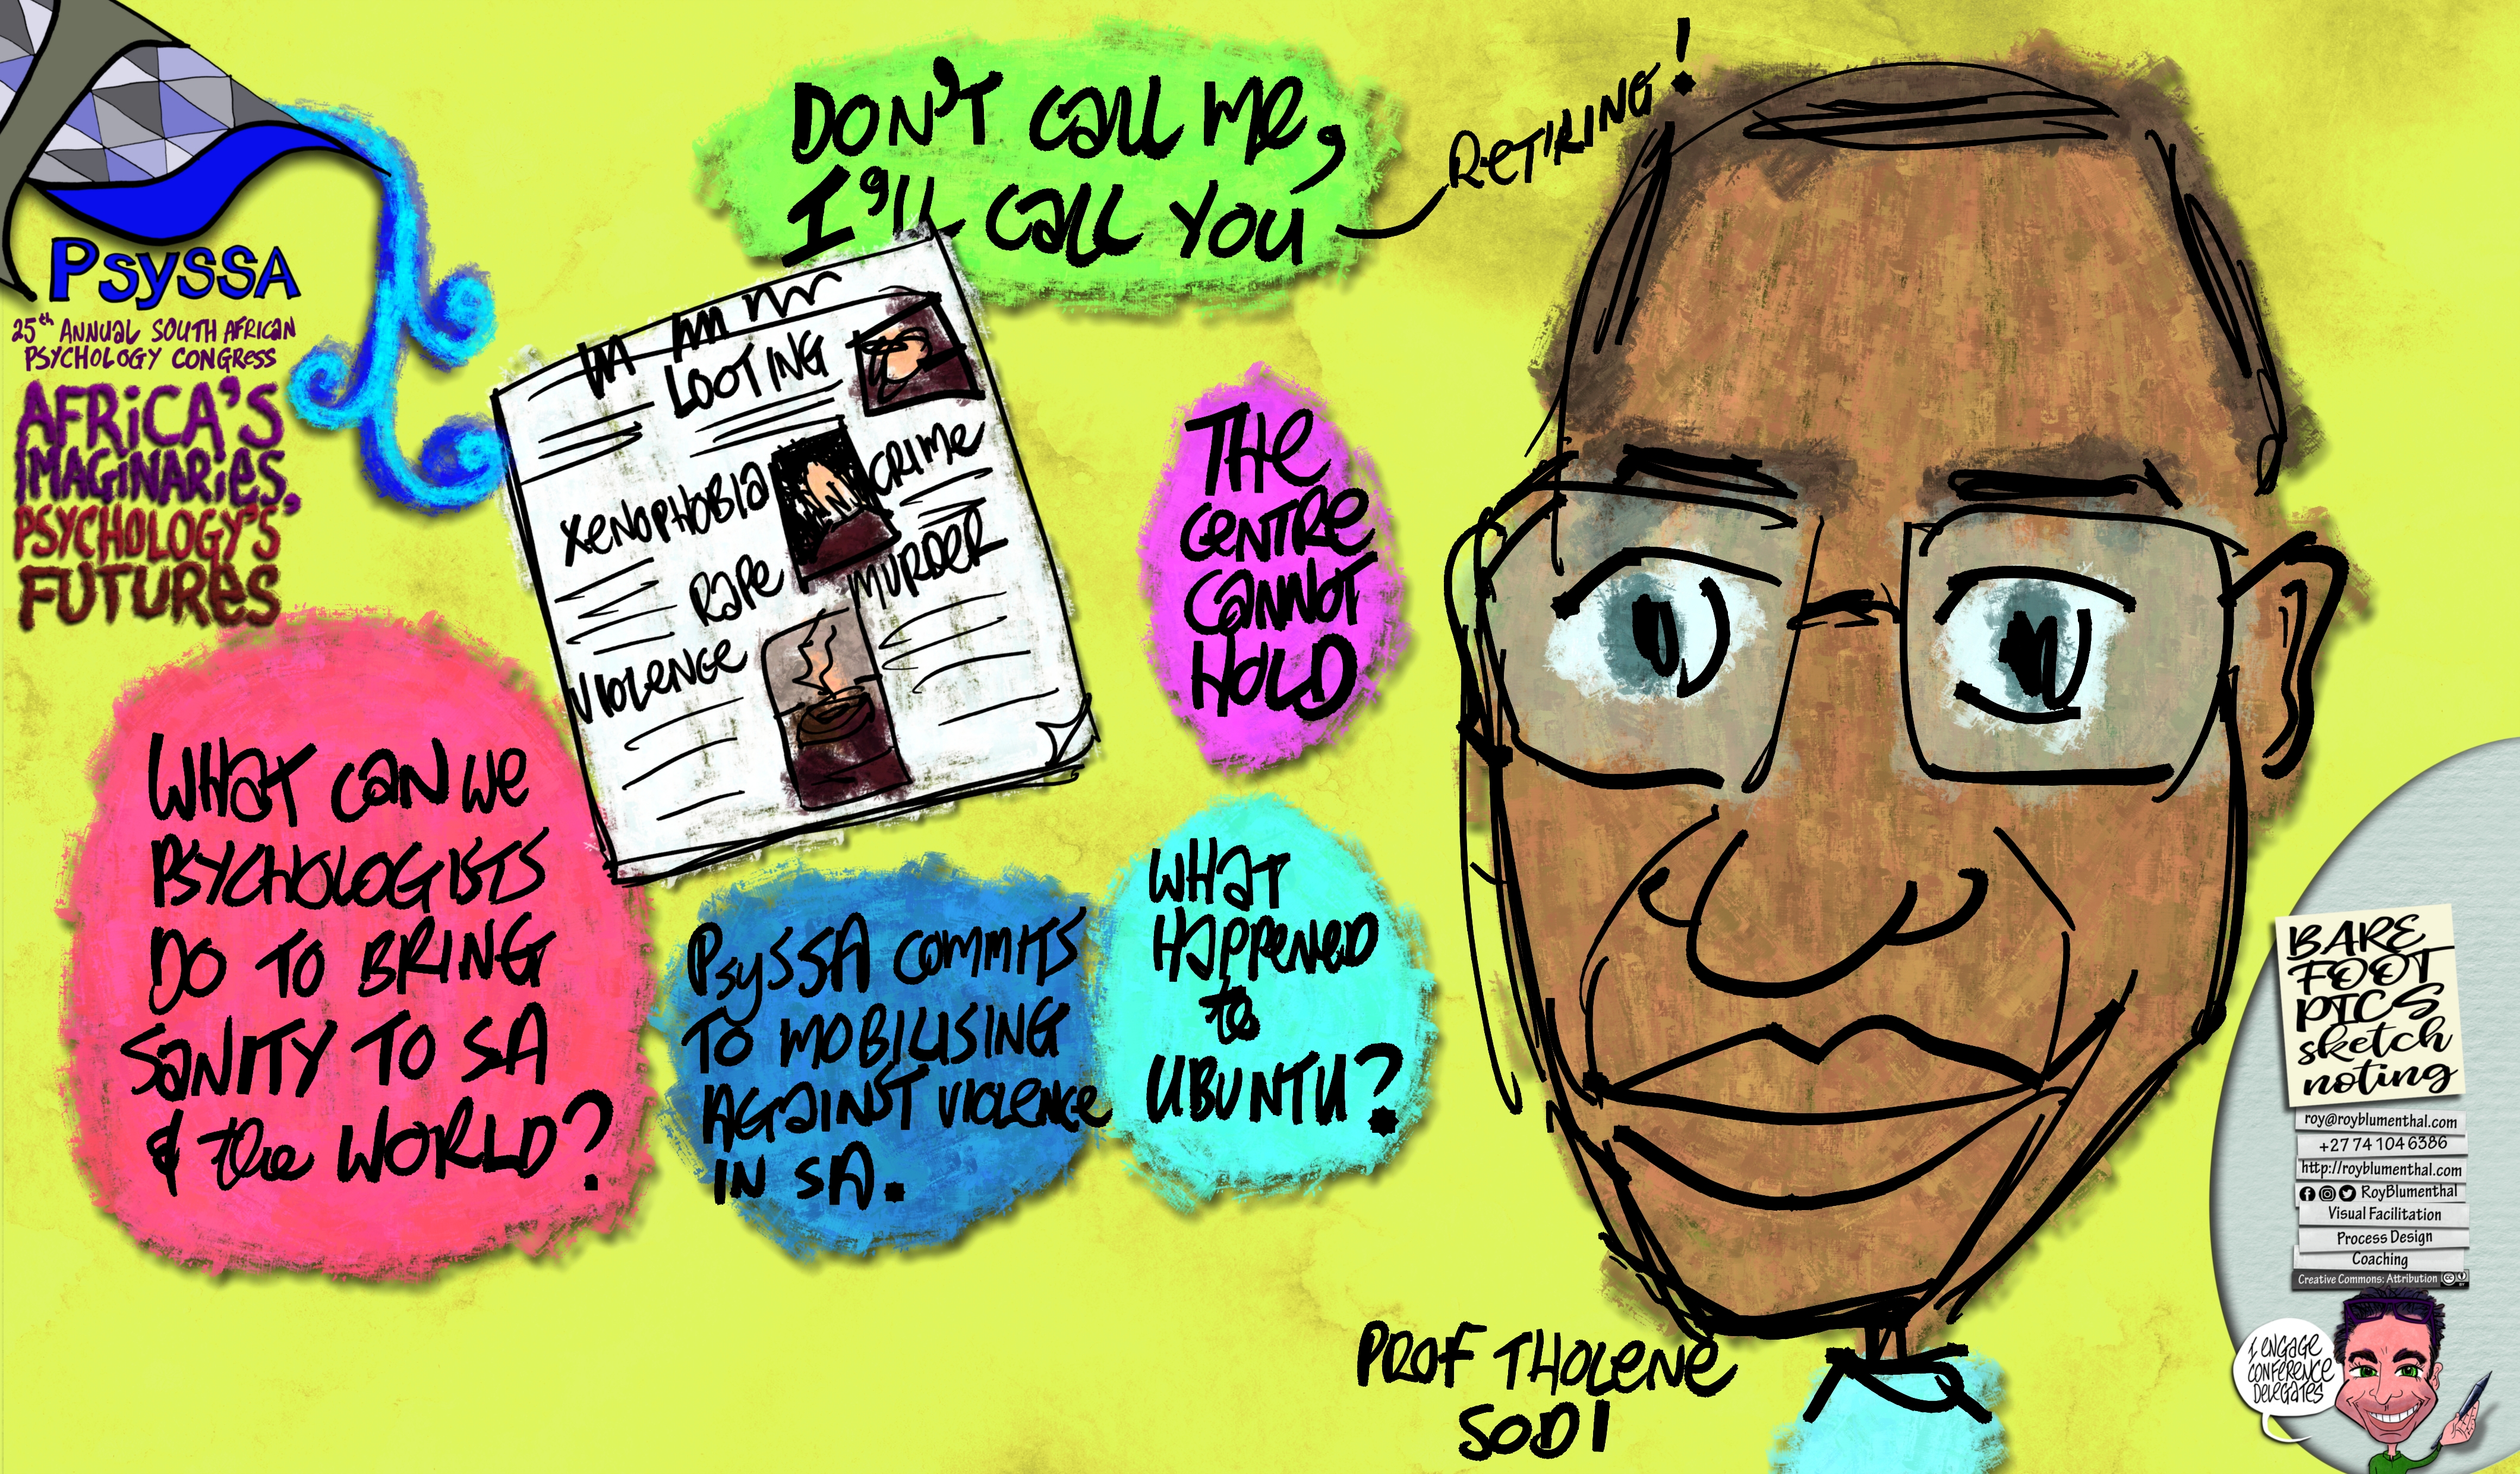 PsySSA
25th ANNUAL SOUTH AFRICAN
PSYCHOLOGY CONGRESS
AFRICA'S
IMAGINARIES,
PSYCHOLOGY'S
FUTURES
DON'T CALL ME,
I'LL CALL YOU
RETIRING!
LOOTING
XENOPHOBIA
CRIME
RAPE
MURDER
VIOLENCE
THE
CENTRE
CANNOT
HOLD
WHAT CAN WE
PSYCHOLOGISTS
DO TO BRING
SANITY TO SA
& the WORLD?
PsySSA COMMITS
TO MOBILISING
AGAINST VIOLENCE
IN SA.
WHAT
HAPPENED
to
UBUNTU?
PROF THOLENE
SODI
BARE
FOOT
PICS
sketch
noting
roy@royblumenthal.com
+27 74 104 6386
http://royblumenthal.com
RoyBlumenthal
Visual Facilitation
Process Design
Coaching
Creative Commons: Attribution
BY
I ENGAGE
CONFERENCE
DELEGATES